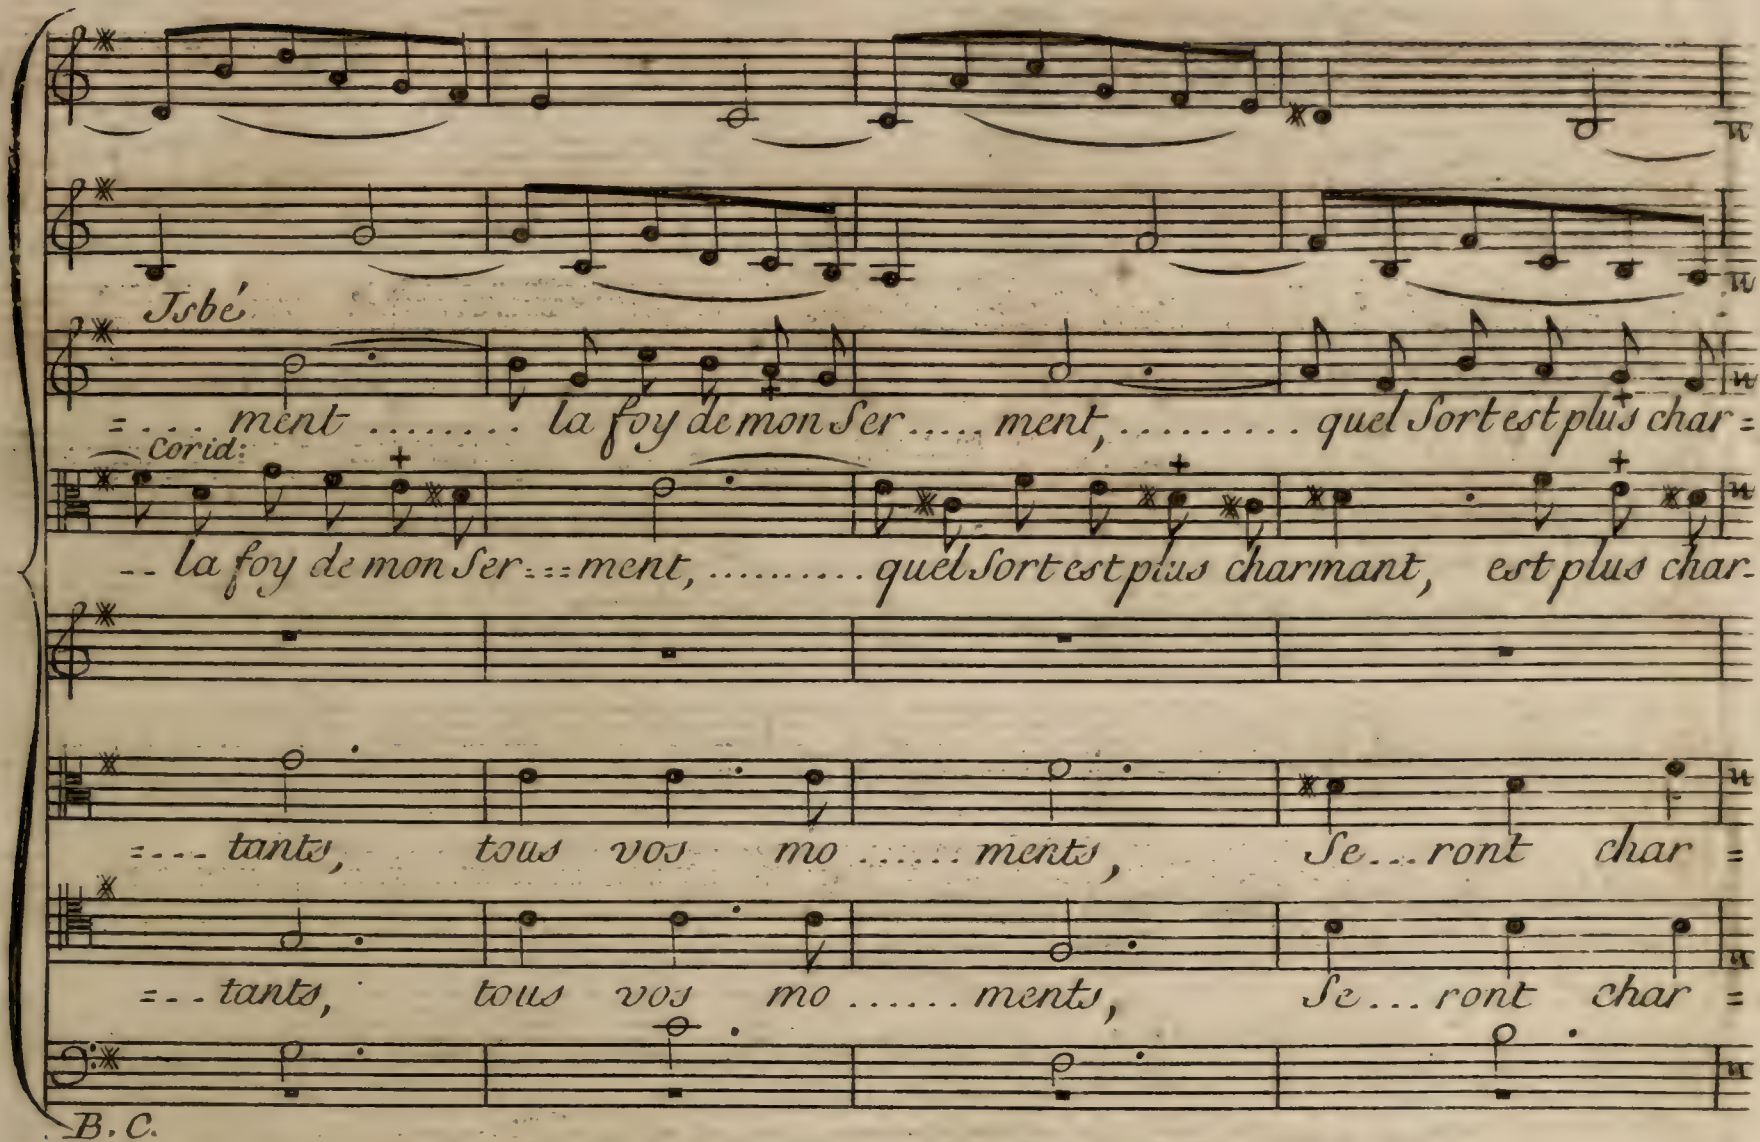 Isbé
=.... ment ........ la foy de mon Ser ..... ment, ......... quel Sort est plus char=
Corid:
-- la foy de mon Ser:::ment, .......... quel Sort est plus charmant, est plus char-
=.... tants, tous vos mo ...... ments, Se...ront char =
=... tants, tous vos mo ...... ments, Se...ront char =
B. C.